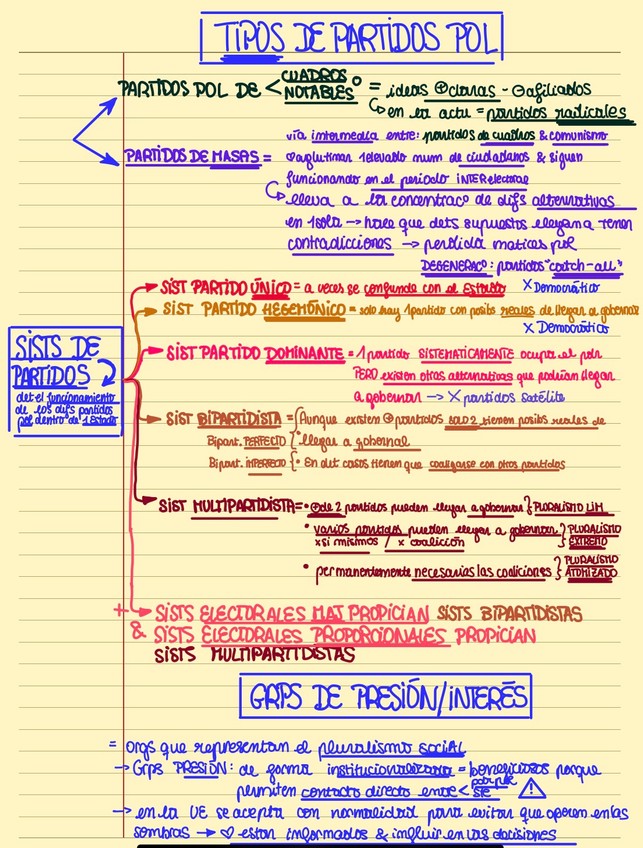 TIPOS DE PARTIDOS POL
PARTIDOS POL DE < CUADROS o NOTABLES = ideas ⊕claras - ⊖afiliados
↳ en la actu = partidos radicales
vía intermedia entre: partidos de cuadros & comunismo
PARTIDOS DE MASAS = ♡aglutinar 1elevado num de ciudadanos & siguen
funcionando en el periodo INTERelectoral
↳ lleva a la concentraco de difs alternativas
en 1sola → hace que dets supuestos lleguen a tener
contradicciones → perdida matices pol
DEGENERACº: partidos "catch-all"
SIST PARTIDO ÚNICO = a veces se confunde con el Estado X Democrático
SIST PARTIDO HEGEMÓNICO = solo hay 1partido con posibs reales de llegar al gobernar
X Democrático
SISTS DE
PARTIDOS
det el funcionamiento
de los difs partidos
pol dentro de 1 Estado
SIST PARTIDO DOMINANTE = 1 partido SISTEMÁTICAMENTE ocupa el pdr
PERO existen otras alternativas que podrían llegar
a gobernar → X partidos satélite
SIST BIPARTIDISTA = Aunque existen ⊕partidos SOLO 2 tienen posibs reales de
Bipart. PERFECTO llegar a gobernar
Bipart. IMPERFECTO • En det casos tienen que coaligarse con otros partidos
SIST MULTIPARTIDISTA = • ⊕de 2 partidos pueden llegar a gobernar } PLURALISMO LIM
• varios partidos pueden llegar a gobernar } PLURALISMO
x si mismos / x coalición EXTREMO
• permanentemente necesarias las coaliciones } PLURALISMO ATOMIZADO
+ → SISTS ELECTORALES MAJ PROPICIAN SISTS BIPARTIDISTAS
& SISTS ELECTORALES PROPORCIONALES PROPICIAN
SISTS MULTIPARTIDISTAS
GRPS DE PRESIÓN/INTERÉS
= orgs que representan el pluralismo social
→ Grps PRESIÓN: de forma institucionalizada = beneficiosos porque
permiten contacto directo entre <
→ en la UE se acepta con normalidad para evitar que operen en las
sombras → ♡ estar informados & influir en las decisiones